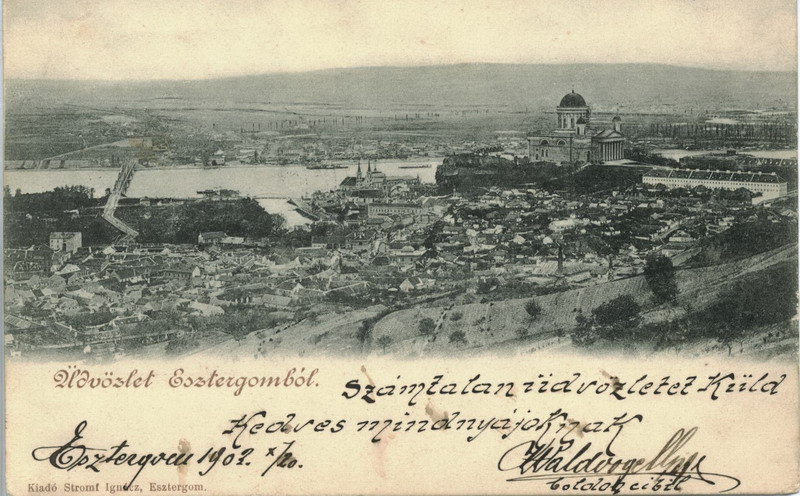 Üdvözlet Esztergomból.
Számtalan üdvözletet Küld
Kedves mindnyájoknak
Esztergom 1902. X/20.
Waldvogel
Kiadó Stromf Ignácz, Esztergom.